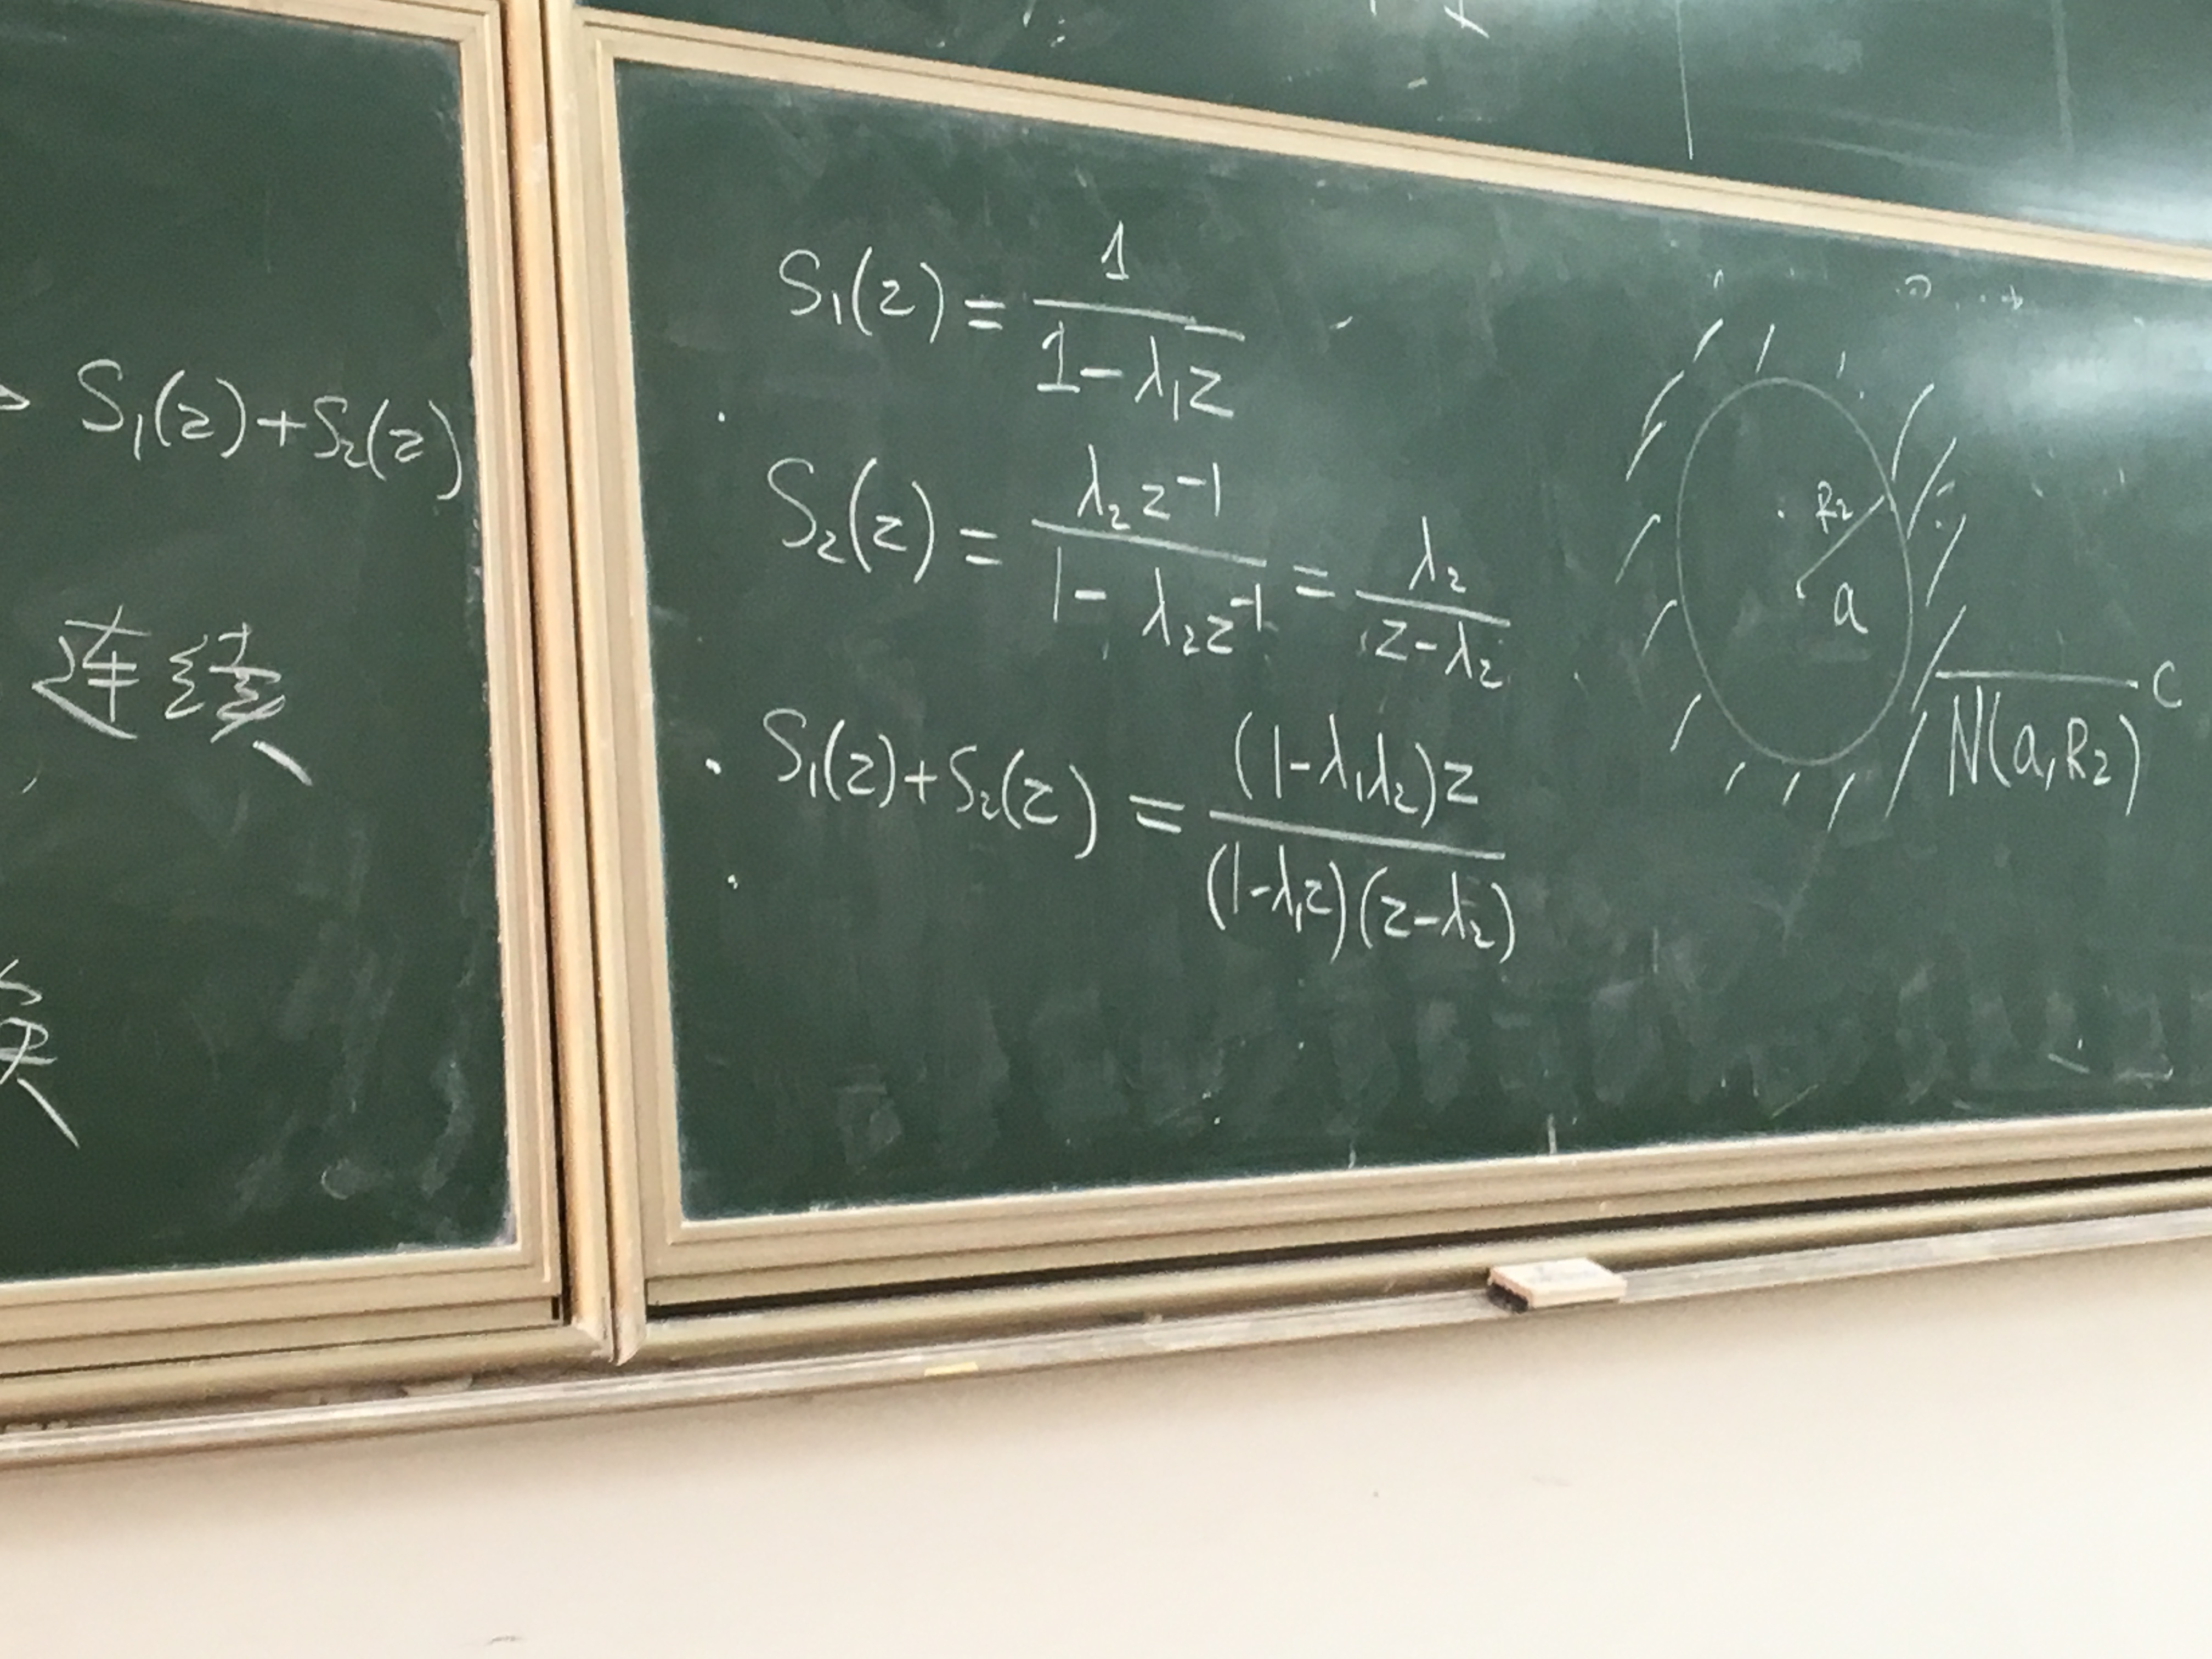 S₁(z)+S₂(z)
连续
S₁(z) = 1/(1-λ₁z)
S₂(z) = λ₂z⁻¹/(1-λ₂z⁻¹) = λ₂/(z-λ₂)
S₁(z)+S₂(z) = (1-λ₁λ₂)z/((1-λ₁z)(z-λ₂))
R₂
a
N̅(̅a̅,̅R̅₂̅)̅ ᶜ